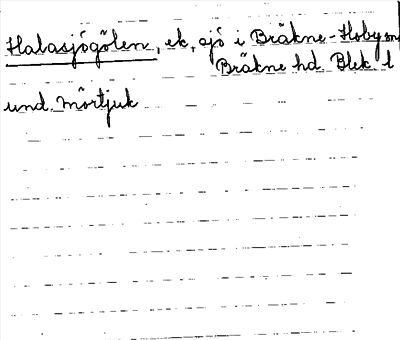 Halasjögölen, ek, sjö i Bräkne-Hoby sn,
Bräkne hd Blek. l
und. Mörtjuk